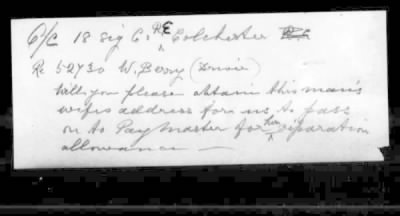 O/C 18 Sig C. RE Colchester
Re 52730 W. Berry (Driver)
Will you please obtain this man's
wife's address for us to pass
on to Paymaster for her separation
allowance —